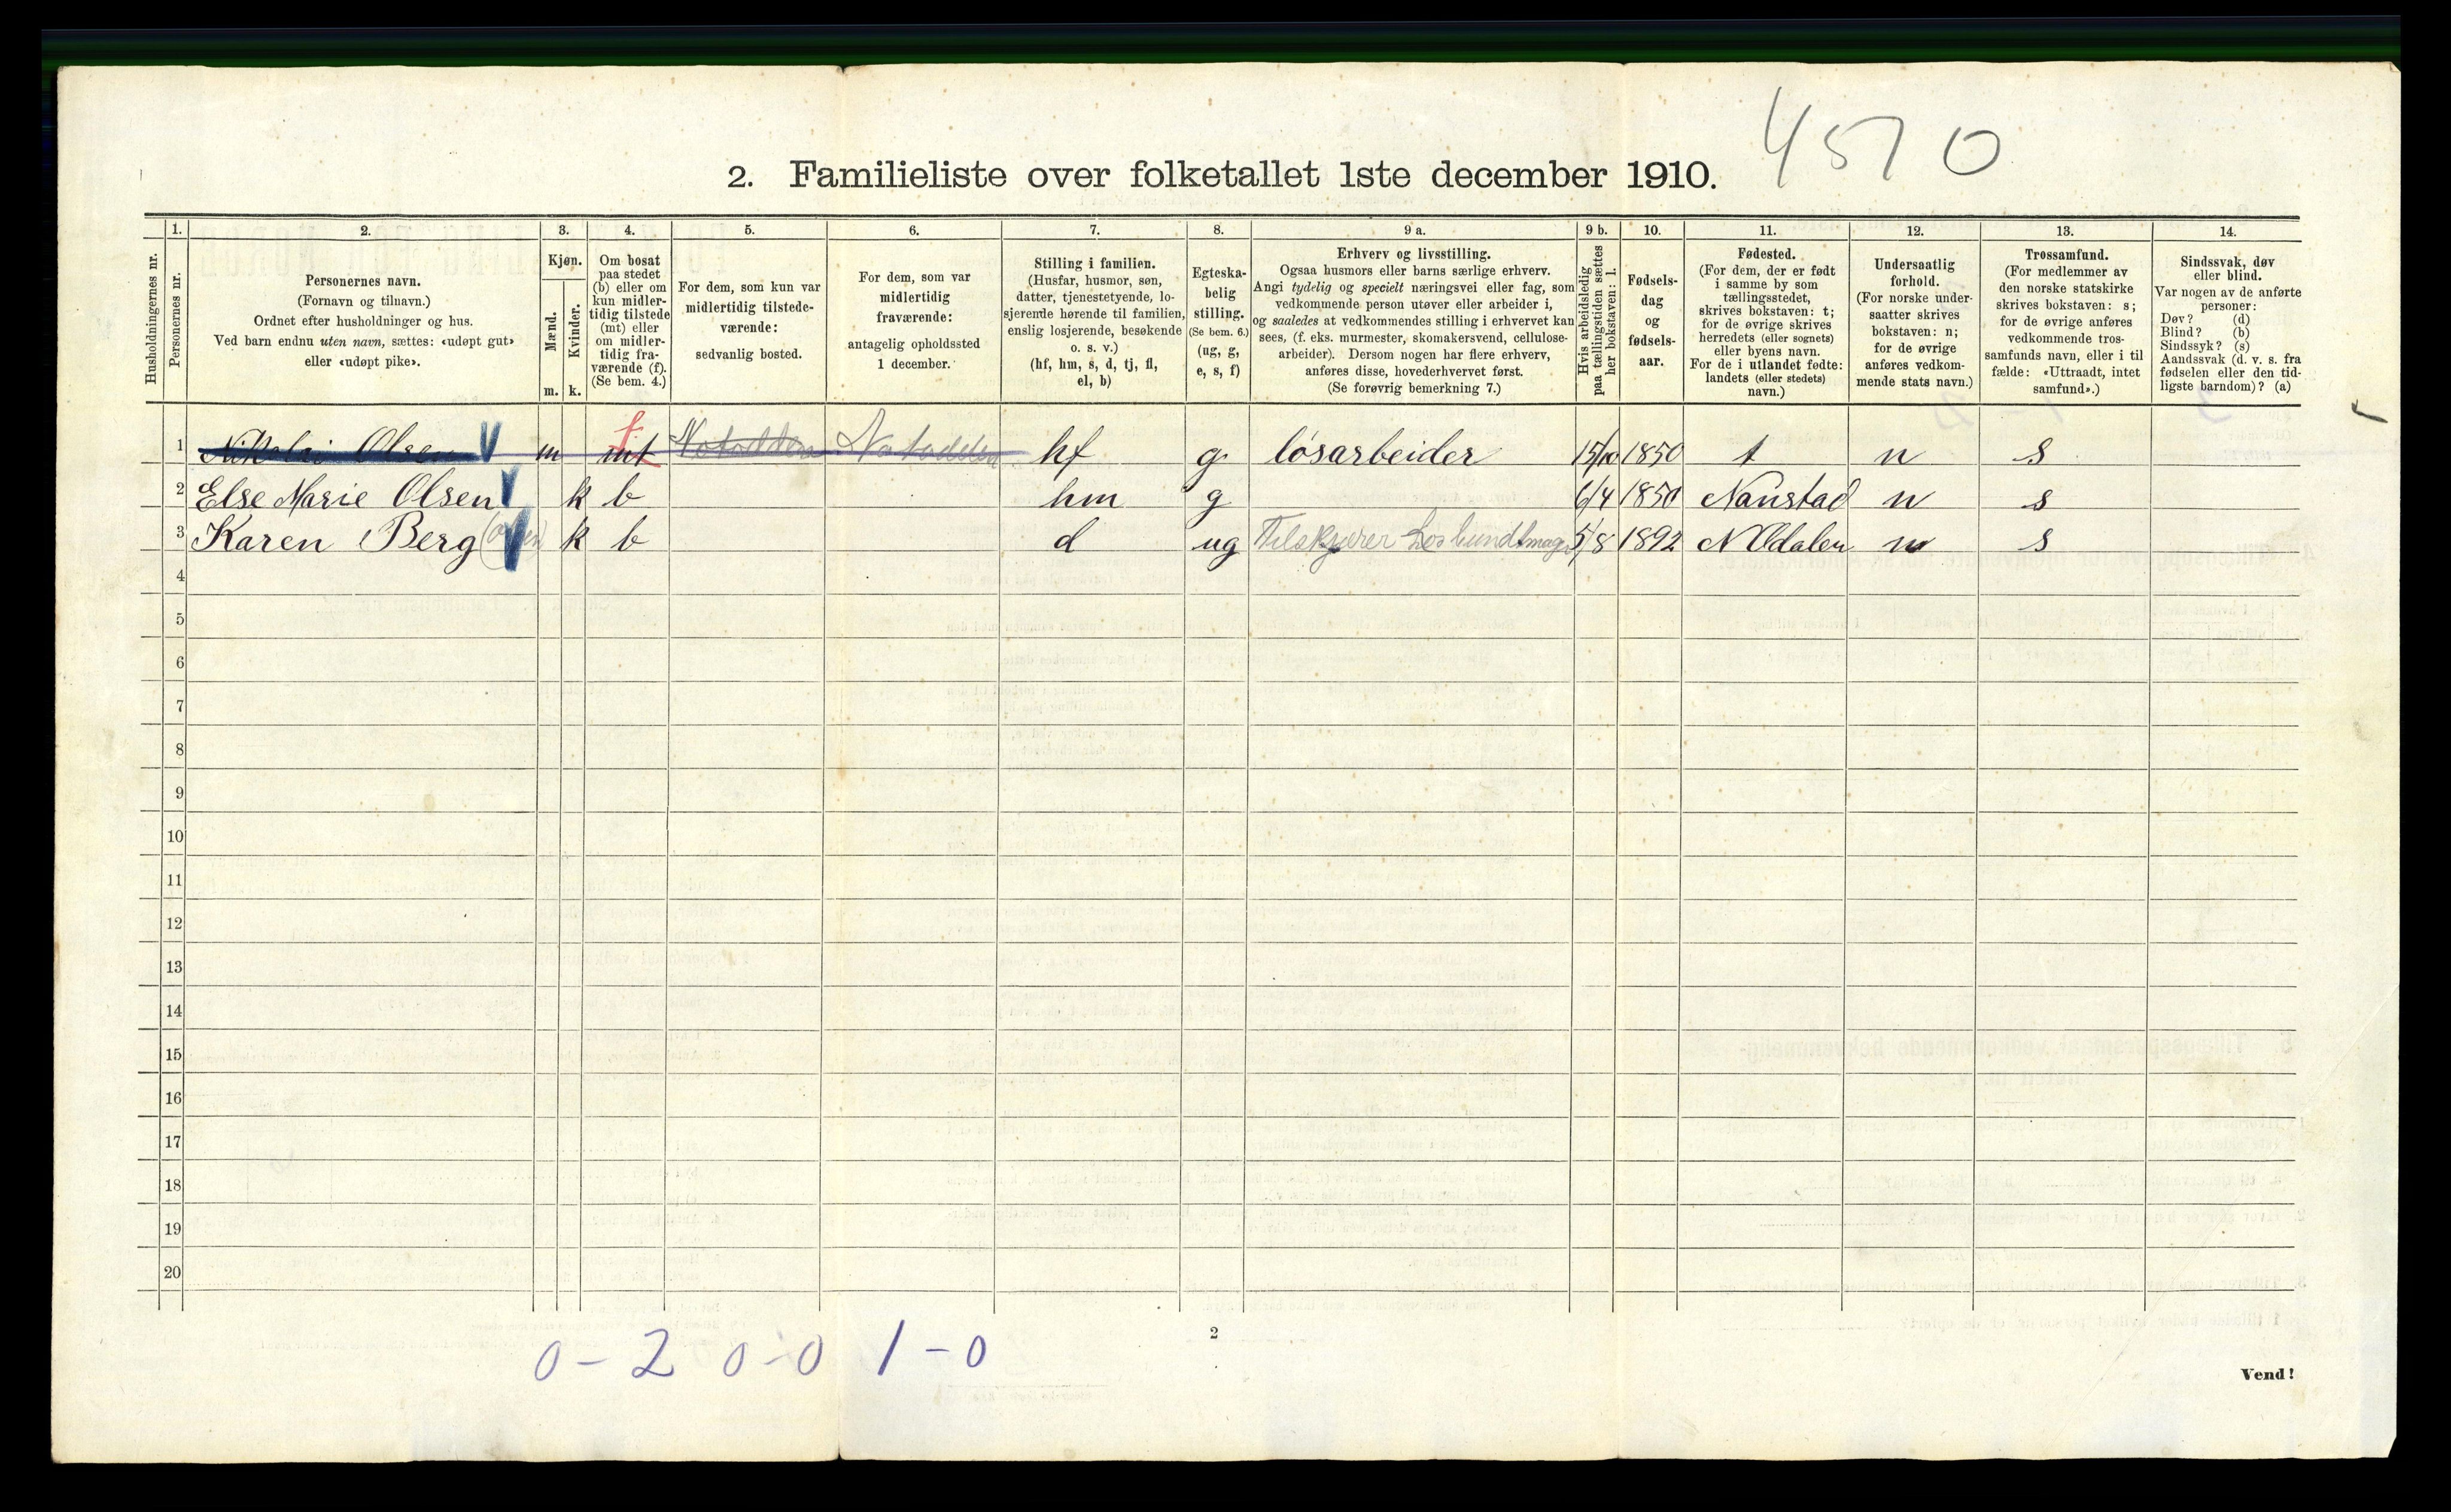 4570
2. Familieliste over folketallet 1ste december 1910.
Husholdningernes nr.
1. Personernes nr.
2. Personernes navn.
(Fornavn og tilnavn.)
Ordnet efter husholdninger og hus.
Ved barn endnu uten navn, sættes: «udøpt gut»
eller «udøpt pike».
3. Kjøn.
Mænd. m.
Kvinder. k.
4. Om bosat
paa stedet
(b) eller om
kun midler-
tidig tilstede
(mt) eller
om midler-
tidig fra-
værende (f).
(Se bem. 4.)
5. For dem, som kun var
midlertidig tilstede-
værende:
sedvanlig bosted.
6. For dem, som var
midlertidig
fraværende:
antagelig opholdssted
1 december.
7. Stilling i familien.
(Husfar, husmor, søn,
datter, tjenestetyende, lo-
sjerende hørende til familien,
enslig losjerende, besøkende
o. s. v.)
(hf, hm, s, d, tj, fl,
el, b)
8. Egteska-
belig
stilling.
(Se bem. 6.)
(ug, g,
e, s, f)
9 a. Erhverv og livsstilling.
Ogsaa husmors eller barns særlige erhverv.
Angi tydelig og specielt næringsvei eller fag, som
vedkommende person utøver eller arbeider i,
og saaledes at vedkommendes stilling i erhvervet kan
sees, (f. eks. murmester, skomakersvend, cellulose-
arbeider). Dersom nogen har flere erhverv,
anføres disse, hovederhvervet først.
(Se forøvrig bemerkning 7.)
9 b. Hvis arbeidsledig
paa tællingstiden sættes
her bokstaven: l.
10. Fødsels-
dag
og
fødsels-
aar.
11. Fødested.
(For dem, der er født
i samme by som
tællingsstedet,
skrives bokstaven: t;
for de øvrige skrives
herredets (eller sognets)
eller byens navn.
For de i utlandet fødte:
landets (eller stedets)
navn.)
12. Undersaatlig
forhold.
(For norske under-
saatter skrives
bokstaven: n;
for de øvrige
anføres vedkom-
mende stats navn.)
13. Trossamfund.
(For medlemmer av
den norske statskirke
skrives bokstaven: s;
for de øvrige anføres
vedkommende tros-
samfunds navn, eller i til
fælde: «Uttraadt, intet
samfund».)
14. Sindssvak, døv
eller blind.
Var nogen av de anførte
personer:
Døv? (d)
Blind? (b)
Sindssyk? (s)
Aandssvak (d. v. s. fra
fødselen eller den tid-
ligste barndom)? (a)
1 Nikolai Olsen m mt f Notodden Notodden hf g løsarbeider 15/10 1850 t n s
2 Else Marie Olsen k b hm g 6/4 1850 Nanstad n s
3 Karen Berg (Olsen) k b d ug Tilskjærer 5/8 1892 N Odalen n s
4
5
6
7
8
9
10
11
12
13
14
15
16
17
18
19
20
0-2 0-0 1-0
2
Vend!